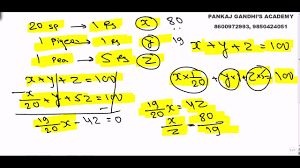 PANKAJ GANDHI'S ACADEMY
8600972993, 9850424051
20 sp → 1 Rs x 80
1 Pigeon → 1 Rs y 19
1 Pea → 5 Rs z
x + y + z = 100
x × 1/20 + y × 1 + z × 5 = 100
x + y + z = 100
x/20 + y + 5z = 100
19/20 x - 4z = 0
19/20 x = 4z
x/z = 80/19